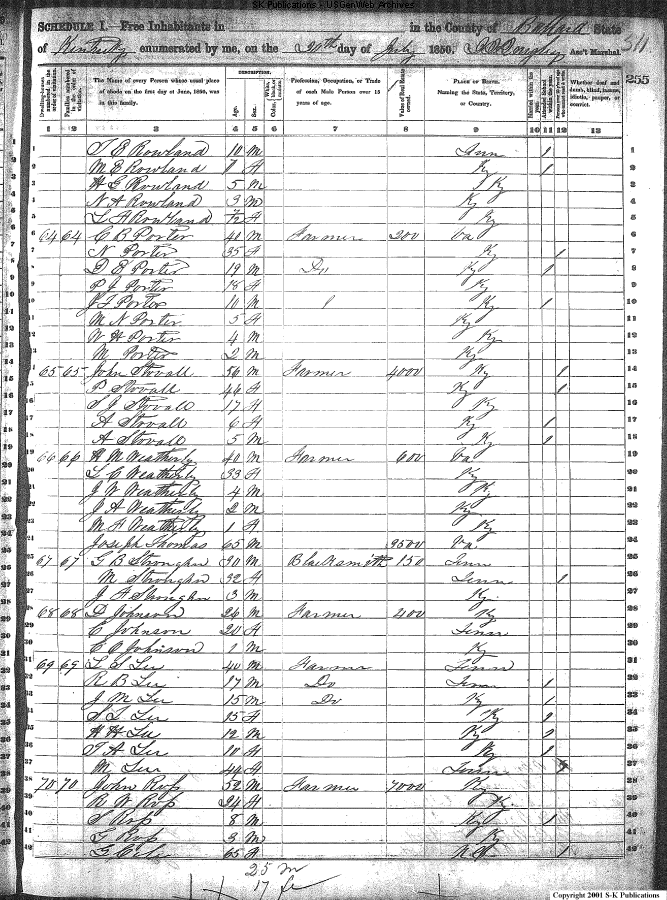 S-K Publications - USGenWeb Archives
SCHEDULE I.—Free Inhabitants in in the County of Ballard State
of Kentucky enumerated by me, on the 20th day of July 1850. Ass't Marshal.
255
Dwelling-houses numbered in the order of visitation.
Families numbered in the order of visitation.
The Name of every Person whose usual place of abode on the first day of June, 1850, was in this family.
DESCRIPTION.
Age.
Sex.
Profession, Occupation, or Trade of each Male Person over 15 years of age.
Value of Real Estate owned.
PLACE OF BIRTH. Naming the State, Territory, or Country.
Married within the year.
Attended School within the year.
Whether deaf and dumb, blind, insane, idiotic, pauper, or convict.
1 2 3 4 5 6 7 8 9 10 11 12 13
1 T E Rowland 10 M Tenn 1 1
2 M E Rowland F Ky 1 2
3 H G Rowland 5 M Ky 3
4 N A Rowland 3 M Ky 4
5 L A Rowland F Ky 5
6 64 64 C B Porter 40 M Farmer 200 Va 6
7 N Porter 35 F Ky 1 7
8 D E Porter 19 M Do Ky 1 8
9 P J Porter 18 F Ky 9
10 J F Porter 10 M Ky 1 10
11 M N Porter 5 F Ky 11
12 W H Porter 4 M Ky 12
13 M Porter 2 M Ky 13
14 65 65 John Stovall 56 M Farmer 4000 Ky 1 14
15 P Stovall 46 F Ky 1 15
16 S J Stovall 17 F Ky 16
17 A Stovall 6 F Ky 1 17
18 A Stovall 5 M Ky 1 18
19 66 66 H M Weatherly 40 M Farmer 600 Va 19
20 L C Weatherly 33 F Ky 20
21 J W Weatherly 4 M Ky 21
22 J A Weatherly 2 M Ky 22
23 M A Weatherly 1 F Ky 23
24 Joseph Thomas 65 M 3500 Va. 24
25 67 67 G B Stroughn 30 M Blacksmith 150 Tenn 25
26 M Stroughn 32 F Tenn 1 26
27 J A Stroughn 3 M Ky 27
28 68 68 D Johnson 26 M Farmer 400 Ky 28
29 C Johnson 20 F Tenn 29
30 E C Johnson 1 M Ky 30
31 69 69 L S Lee 40 M Farmer Tenn 31
32 R B Lee 17 M Do Tenn 1 32
33 J M Lee 15 M Do Ky 1 33
34 S L Lee 15 F Ky 1 34
35 H H Lee 12 M Ky 1 35
36 T A Lee 10 F Ky 1 36
37 M Lee 44 F Tenn 37
38 70 70 John Ross 52 M Farmer 7000 Ky 38
39 R W Ross 24 F Ky. 39
40 S Ross 8 M Ky 1 40
41 G Ross 3 M Ky 41
42 G Cole 65 F N.C. 1 42
25 m
17 fe
Copyright 2001 S-K Publications